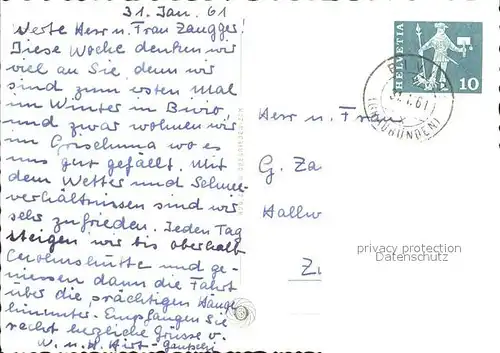 31. Jan. 61
Werte Herr u. Frau Zaugger!
Diese Woche denken wir
viel an Sie, denn wir
sind zum ersten mal
im Winter in Bivio,
und zwar wohnen wir
im Grischuna wo es
uns gut gefällt. Mit
dem Wetter und Schnee-
verhältnissen sind wir
sehr zufrieden. Jeden Tag
steigen wir bis oberhalb
und ge-
niessen dann die Fahrt
über die prächtigen Hänge
hinunter. Empfangen Sie
recht herzliche Grüsse v.
W. u. H. Hirt-
HELVETIA
10
(GRAUBÜNDEN)
Herr u. Frau
G. Za
Hallw
Z
privacy protection
Datenschutz